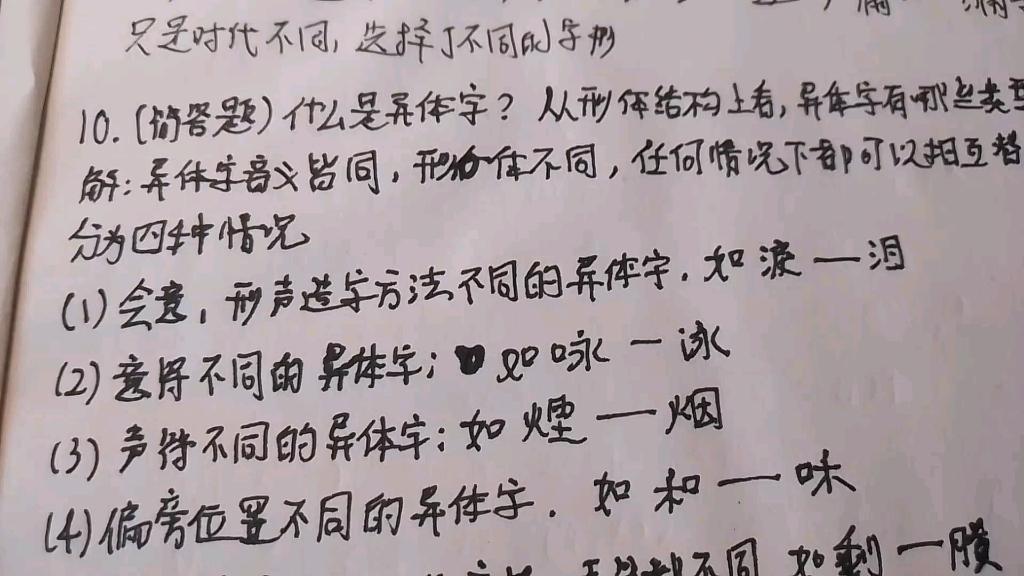 只是时代不同,选择了不同的字形
10.(简答题)什么是异体字?从形体结构上看,异体字有哪些类型
解:异体字音义皆同,形体不同,任何情况下都可以相互替
分为四种情况
(1)会意,形声造字方法不同的异体字.如淚一泪
(2)意符不同的异体字;如咏一泳
(3)声符不同的异体字;如煙一烟
(4)偏旁位置不同的异体字.如和一咊
不同 如剩一賸